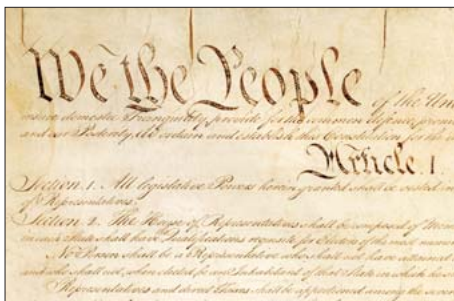 We the People of the Uni
insure domestic Tranquility, provide for the common defence, promo
and our Posterity, do ordain and establish this Constitution for the U
Article. I.
Section. 1. All legislative Powers herein granted shall be vested in
of Representatives.
Section. 2. The House of Representatives shall be composed of Mem
in each State shall have Qualifications requisite for Electors of the most numer
No Person shall be a Representative who shall not have attained
and who shall not, when elected, be an Inhabitant of that State in which he s
Representatives and direct Taxes shall be apportioned among the seve